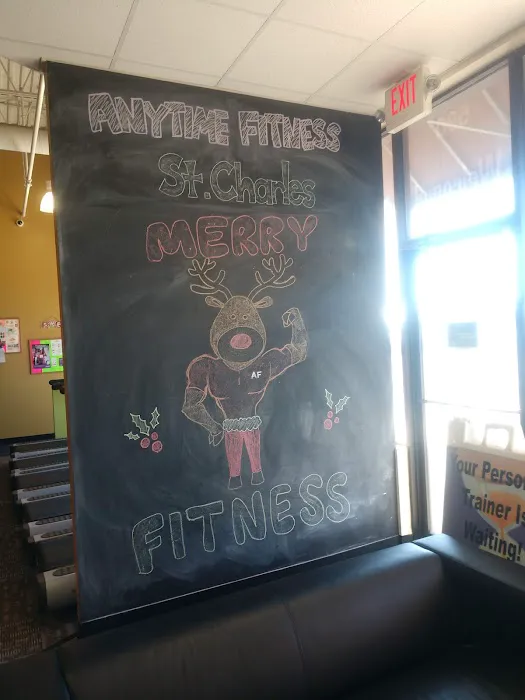 ANYTIME FITNESS
EXIT
St. Charles
MERRY
AF
FITNESS
our Person
Trainer Is
Waiting!